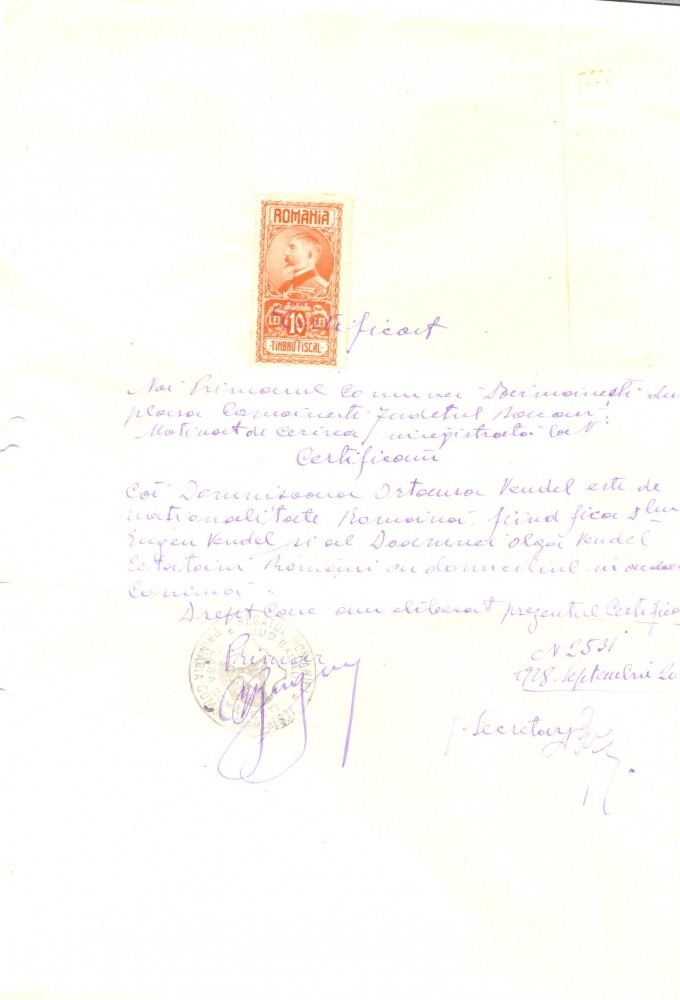 ROMANIA
LEI 10 LEI
TIMBRU FISCAL
Certificat
Noi Primarul Comunei Dermănești din
plasa Comănești Județul
Motivat de cerirea înregistrată la N
Certificăm
Că Domnișoara Ortansa Vendel este de
naționalitate Romăină, fiind fica Dlui
Eugen Vendel și al Doamnei Olga Vendel
Români cu domiciliul în
Comună.
Drept care am eliberat prezentul Certifica
Primar
N 2531
1928 Septembrie 20
Secretar
REGATUL
JUD
PRIMĂRIA COM